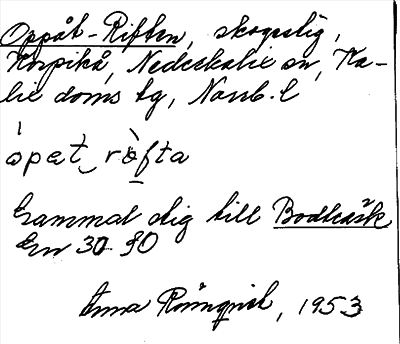 Oppåt-Riften, skogsstig,
Korpikå, Nederkalix sn, Ka-
lix doms tg, Norrb. l
åpat rèfta
Gammal stig till Bodträsk
En 30 90
Anna Rönnqvist, 1953